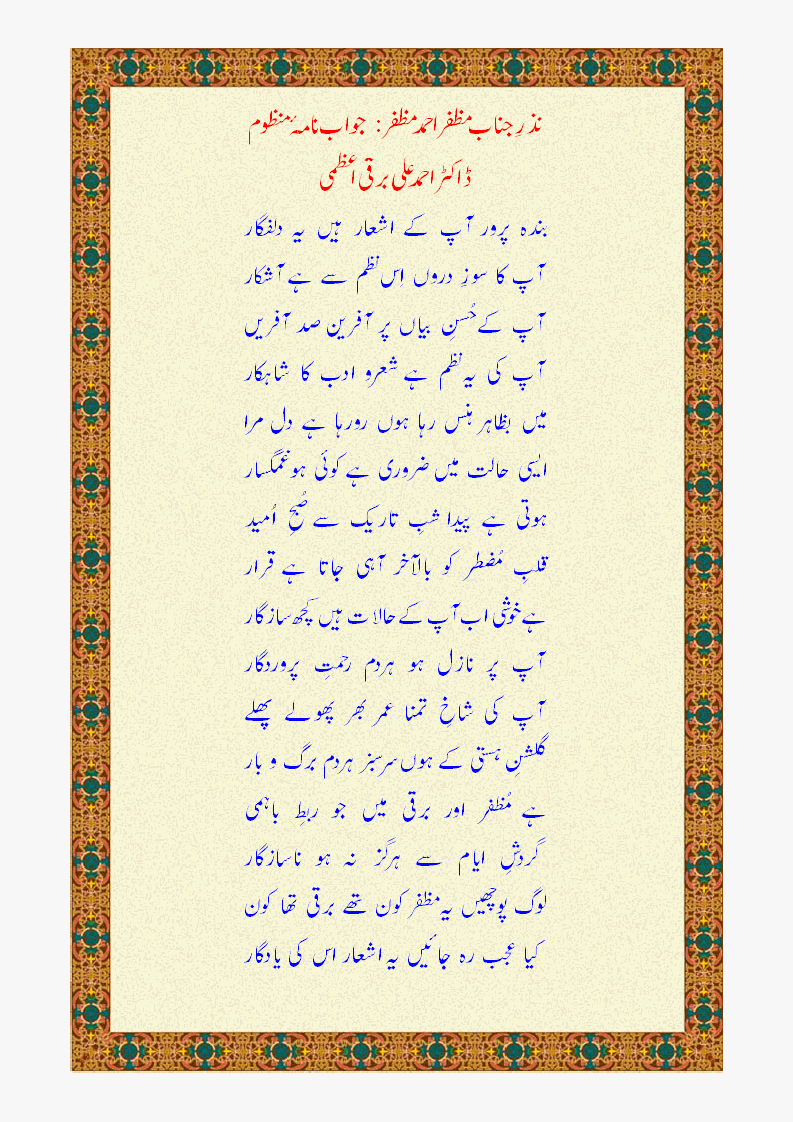 نذرِ جناب مظفر احمد مظفر : جواب نامۂ منظوم
ڈاکٹر احمد علی برقی اعظمی
بندہ پرور آپ کے اشعار ہیں یہ دلفگار
آپ کا سوزِ دروں اِس نظم سے ہے آشکار
آپ کے حُسنِ بیاں پر آفرین صد آفریں
آپ کی یہ نظم ہے شعرو ادب کا شاہکار
میں بظاہر ہنس رہا ہوں رورہا ہے دل مرا
ایسی حالت میں ضروری ہے کوئی ہو غمگسار
ہوتی ہے پیدا شبِ تاریک سے صُبحِ اُمید
قلبِ مُضطر کو بالآخر آہی جاتا ہے قرار
ہے خوشی اب آپ کے حالات ہیں کچھ سازگار
آپ پر نازل ہو ہردم رحمتِ پروردگار
آپ کی شاخِ تمنا عمر بھر پھولے پھلے
گلشنِ ہستی کے ہوں سرسبز ہردم برگ و بار
ہے مُظفر اور برقی میں جو ربطِ باہمی
گردشِ ایام سے ہرگز نہ ہو ناسازگار
لوگ پوچھیں یہ مظفر کون تھے برقی تھا کون
کیا عجب رہ جائیں یہ اشعار اس کی یادگار